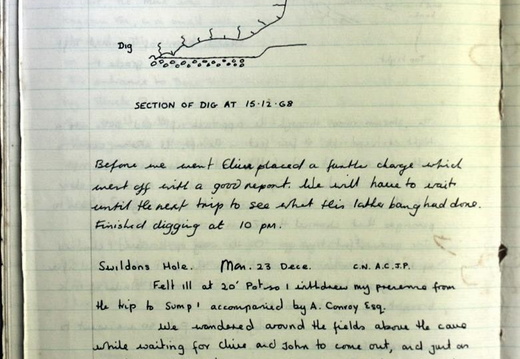 Dig
SECTION OF DIG AT 15-12-68
Before we went Clive placed a further charge which
went off with a good report. We will have to wait
until the next trip to see what this latter bang had done.
Finished digging at 10 pm.
Swildons Hole. Mon. 23 Dece. C.N. A.C. J.P.
Felt ill at 20' Pot so I withdrew my presence from
the trip to Sump 1 accompanied by A. Conroy Esq.
We wandered around the fields above the cave
while waiting for Clive and John to come out, and just as